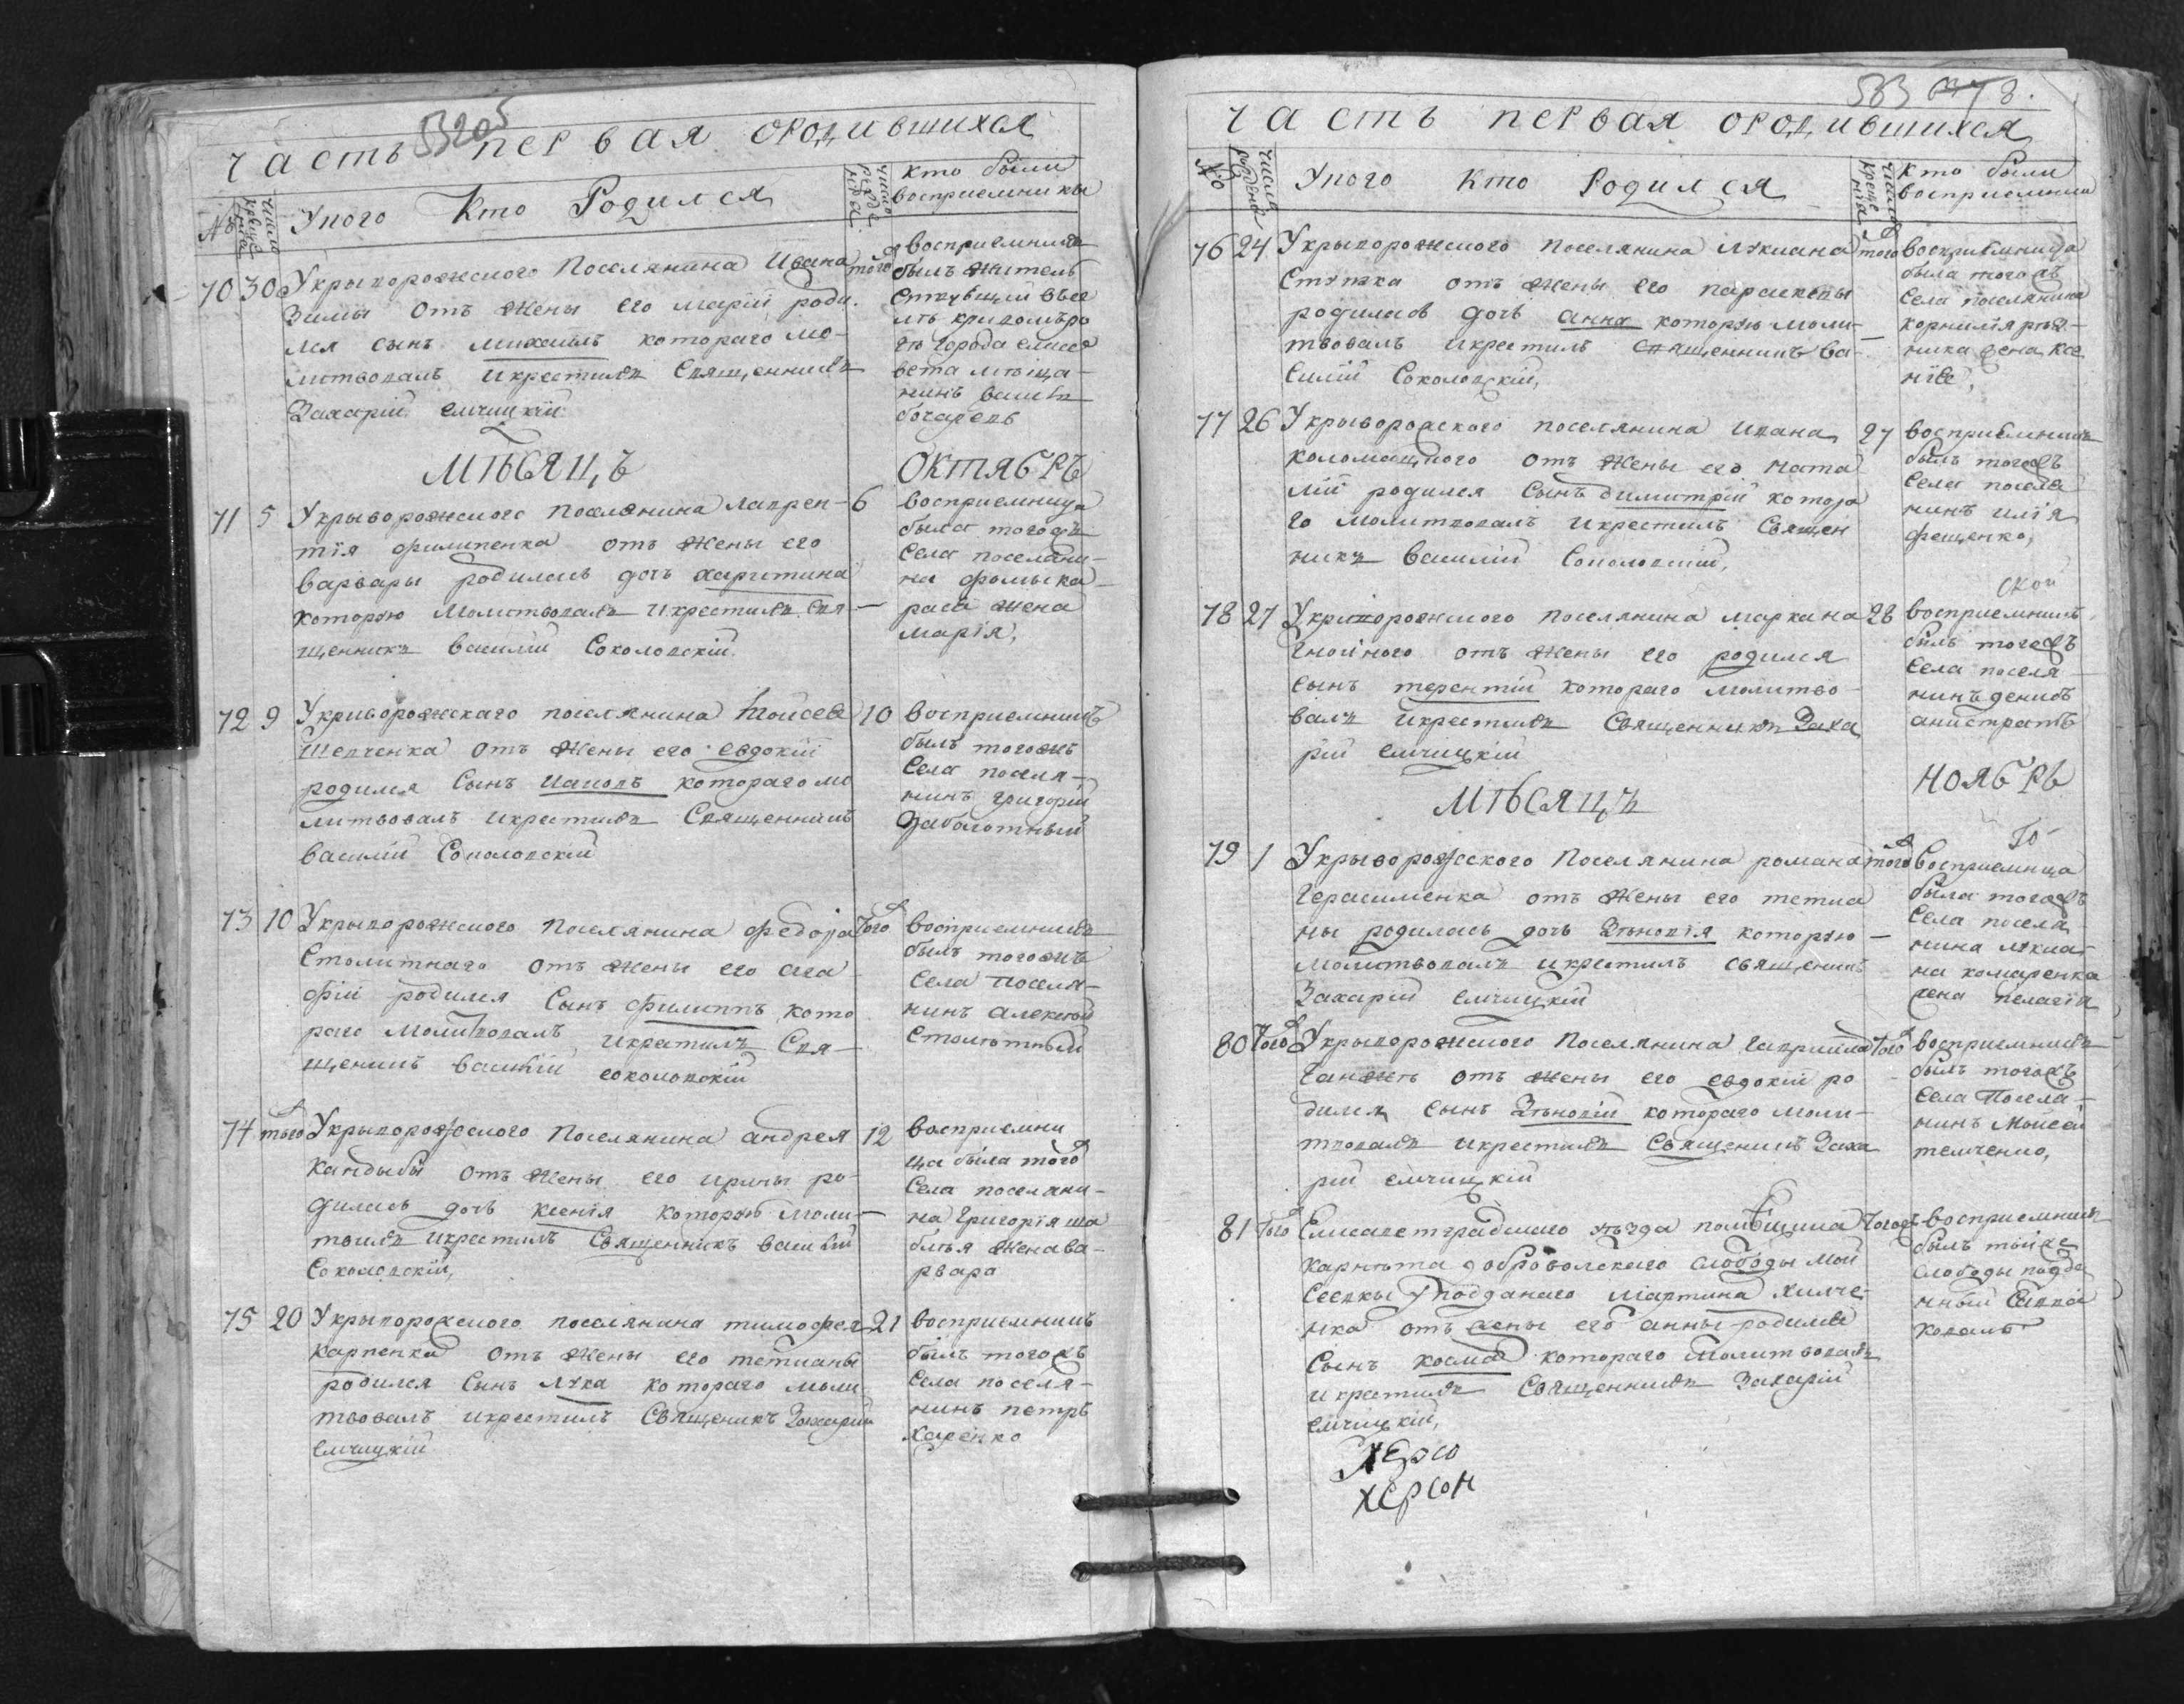 часть первая ородившихся
№ число крещения
Укого Кто Родился
число рожде нїа
кто были
восприемники
70 30 Укрыворожского Поселянина Ивана того
Зимы отъ жены его марїй роди
лся сынъ михаилъ котораго мо-
литвовалъ икрестилъ Священникъ
Захарїй елчицкїй
восприемникъ
былъ житель
города елиса
вета мѣща-
нинъ
МѢСЯЦЪ ОКТЯБРЬ
71 5 Укрыворожского поселянина лаврен- 6
тїя филипенка отъ жены его
варвары родилась дочь харитина
которую молитвовалъ икрестилъ свя-
щенникъ василїй Соколовскїй
восприемница
была тогожъ
села поселани-
на фомы ка
раса жена
марїя,
72 9 Укриворожскаго поселянина Моисея 10
Шевченка отъ жены его евдокїй
родился сынъ иаковъ котораго мо
литвовалъ икрестилъ Священникъ
василїй Соколовскїй
восприемникъ
былъ тогожъ
села поселя-
нинъ григорїй
Заболотный
73 10 Укрыворожского поселянина федора Того
Столитнаго отъ жены его ага
фїй родился сынъ филиппъ кото
раго молитвовалъ икрестилъ Свя-
щеникъ василїй соколовскїй
восприемникъ
былъ тогожъ
села поселя-
нинъ алексѣй
Столѣтный
74 того Укрыворожского поселянина андрея 12
Кандыбы отъ жены его ирины ро-
дилась дочь ксенїя которую моли-
твилъ икрестилъ Священникъ василїй
Соколовскїй,
восприемни
ца была того
села поселяни-
на григорїя ша
блѣя жена ва-
рвара
75 20 Укрыворожского поселянина тимофея 21
Карпенка отъ жены его тетианы
родился сынъ лука котораго моли
твовалъ икрестилъ Священикъ Захарїй
елчицкїй
восприемникъ
былъ тогожъ
села поселя-
нинъ петръ
Харенко
часть первая ородившихся
№ число рожденї
Укого кто Родился
число креще нїа
кто были
восприемники
76 24 Укрыворожского поселянина лукиана того
Ступка отъ жены его параскевы
родилась дочь анна которую моли-
твовалъ икрестилъ священникъ ва-
силїй Соколовскїй,
восприемница
была тогожъ
села поселянина
корнилїя
жена ксе
нїе,
77 26 Укрыворожского поселянина ивана 27
коломацкого отъ жены его ната
лїй родился сынъ димитрїй котора
го молитвовалъ икрестилъ Священ
никъ василїй Соколовскїй,
восприемникъ
былъ тогожъ
села поселя
нинъ илїя
фещенко,
78 27 Укриворожского поселянина маркана 28
Гнойного отъ жены его родился
сынъ терентїй котораго молитво-
валъ икрестилъ Священникъ Заха
рїй елчицкїй
восприемникъ
былъ тогожъ
села поселя-
нинъ денисъ
анистратъ
МѢСЯЦЪ НОЯБРЬ
79 1 Укрыворожского поселянина романа того
Герасименка отъ жены его тетиа
ны родилась дочь Зѣновїя которую
молитвовалъ икрестилъ священикъ
Захарїй елчицкїй
восприемница
была тогожъ
села поселя
нина лукиа
на комаренка
жена пелагїя
80 Того Укрыворожского поселянина гаврїила Того
Ганжѣ отъ жены его евдокїй ро
дился сынъ Зѣновїй котораго моли-
твовалъ икрестилъ Священикъ Заха
рїй елчицкїй
восприемникъ
былъ тогожъ
села Поселя-
нинъ Моисей
темченко,
81 Того Елисаветградского уѣзда помѣщика Тогожъ
карнѣта добровольского слободы мои
сеевки подданаго мартина хилче-
нка отъ жены его анны родился
сынъ косма котораго молитвовалъ
икрестилъ Священникъ Захарїй
елчицкїй,
восприемникъ
былъ тойже
слободы подда
нный савва
коваль
Херсо
херсон